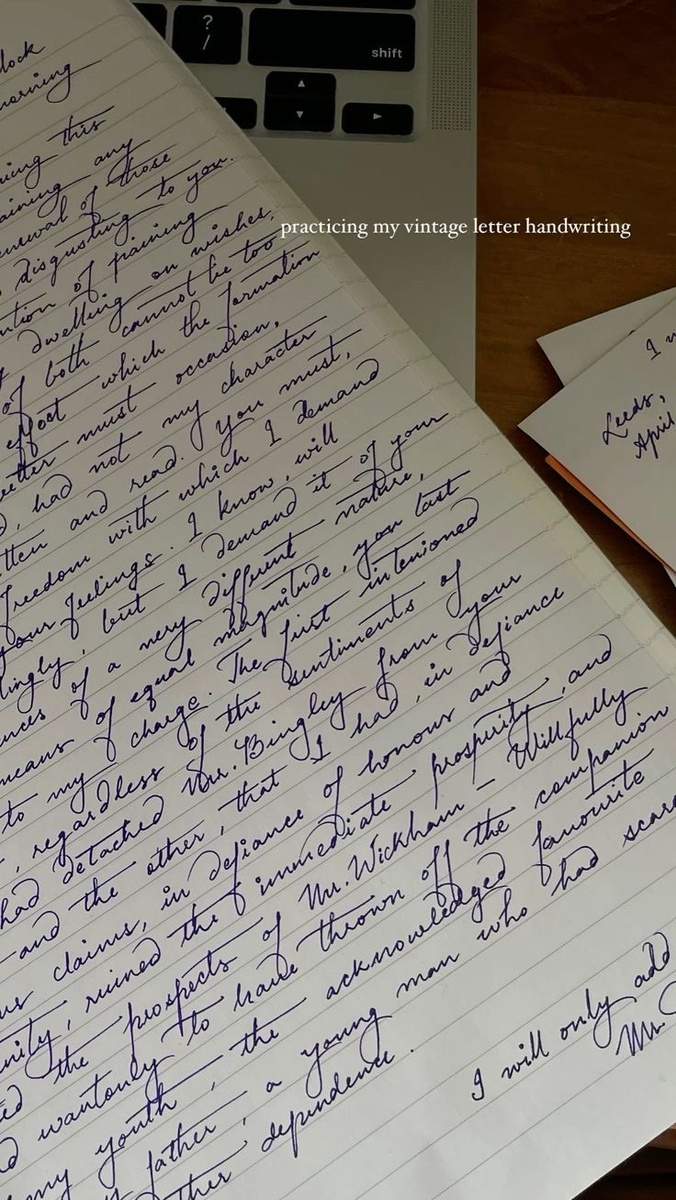 ?
/
shift
practicing my vintage letter handwriting
Leeds,
April
morning
this
any
those
disgusting to you.
of paining
dwelling on wishes,
of both cannot be too
effort which the formation
letter must occasion,
had not my character
and read. You must,
freedom with which I demand
your feelings. I know, will
but I demand it of your
of a very different nature,
means of equal magnitude, you last
to my charge. The first intenioned
regardless of the sentiments of
had detached Mr. Bingley from your
- and the other, that I had, in defiance
claims, in defiance of honour and
ruined the immediate prosperity, and
the prospects of Mr. Wickham - Willfully
wantonly to have thrown off the companion
my youth, the acknowledged favourite
father, a young man who had
dependence.
I will only add